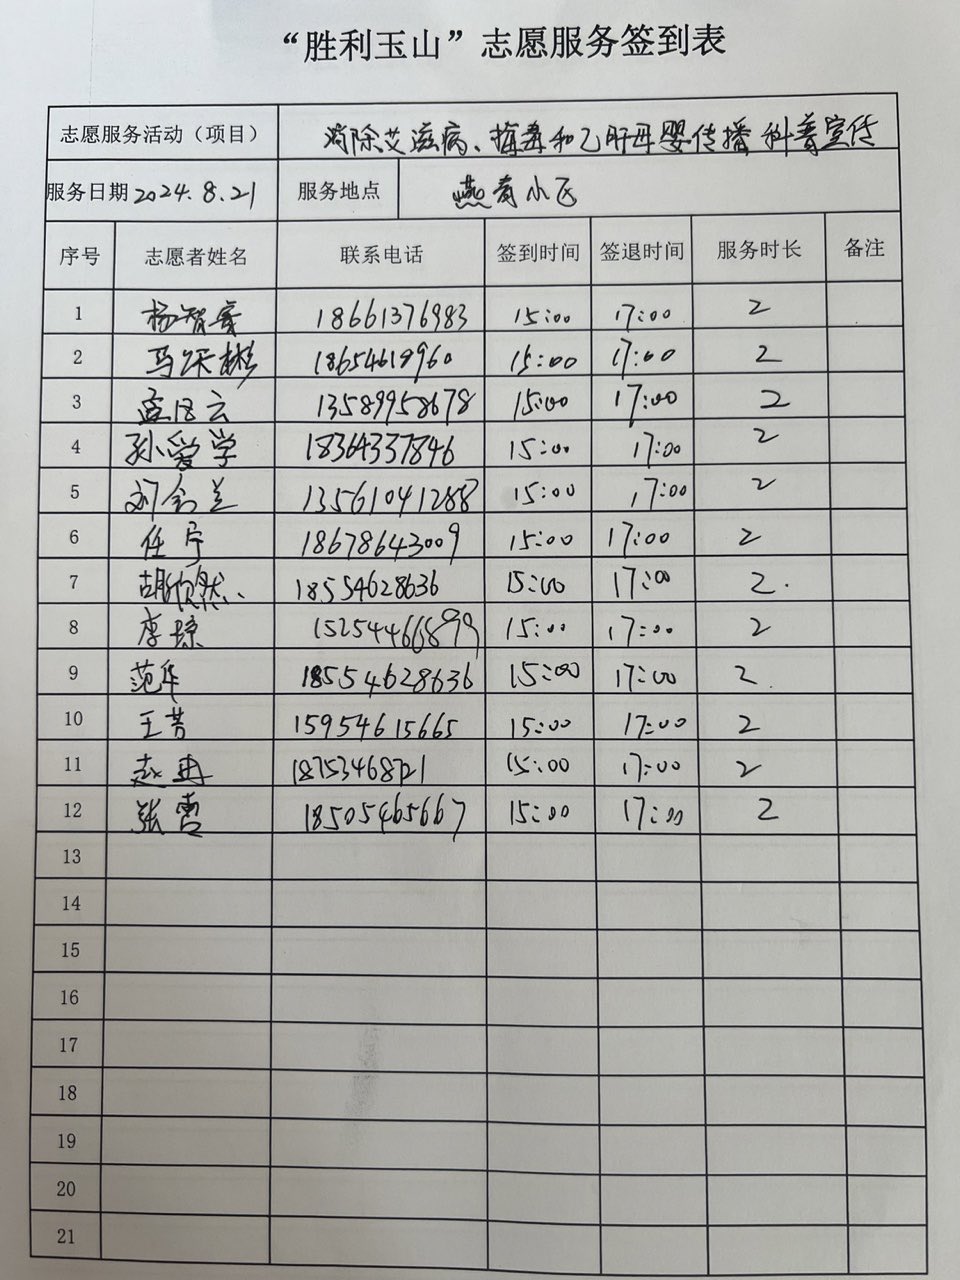 “胜利玉山”志愿服务签到表
志愿服务活动（项目） 消除艾滋病、梅毒和乙肝母婴传播科普宣传
服务日期 2024.8.21 服务地点 燕青小区
序号 志愿者姓名 联系电话 签到时间 签退时间 服务时长 备注
1 杨智 18661376983 15:00 17:00 2
2 马 彬 18654619960 15:00 17:00 2
3 孟 云 13589958678 15:00 17:00 2
4 孙爱学 18364337846 15:00 17:00 2
5 刘 兰 13561041288 15:00 17:00 2
6 任宁 18678643009 15:00 17:00 2
7 胡欣然 18554628636 15:00 17:00 2
8 李琼 15254466899 15:00 17:00 2
9 范华 18554628636 15:00 17:00 2
10 王芳 15954615665 15:00 17:00 2
11 赵冉 18753468721 15:00 17:00 2
12 张雪 18505465667 15:00 17:00 2
13
14
15
16
17
18
19
20
21